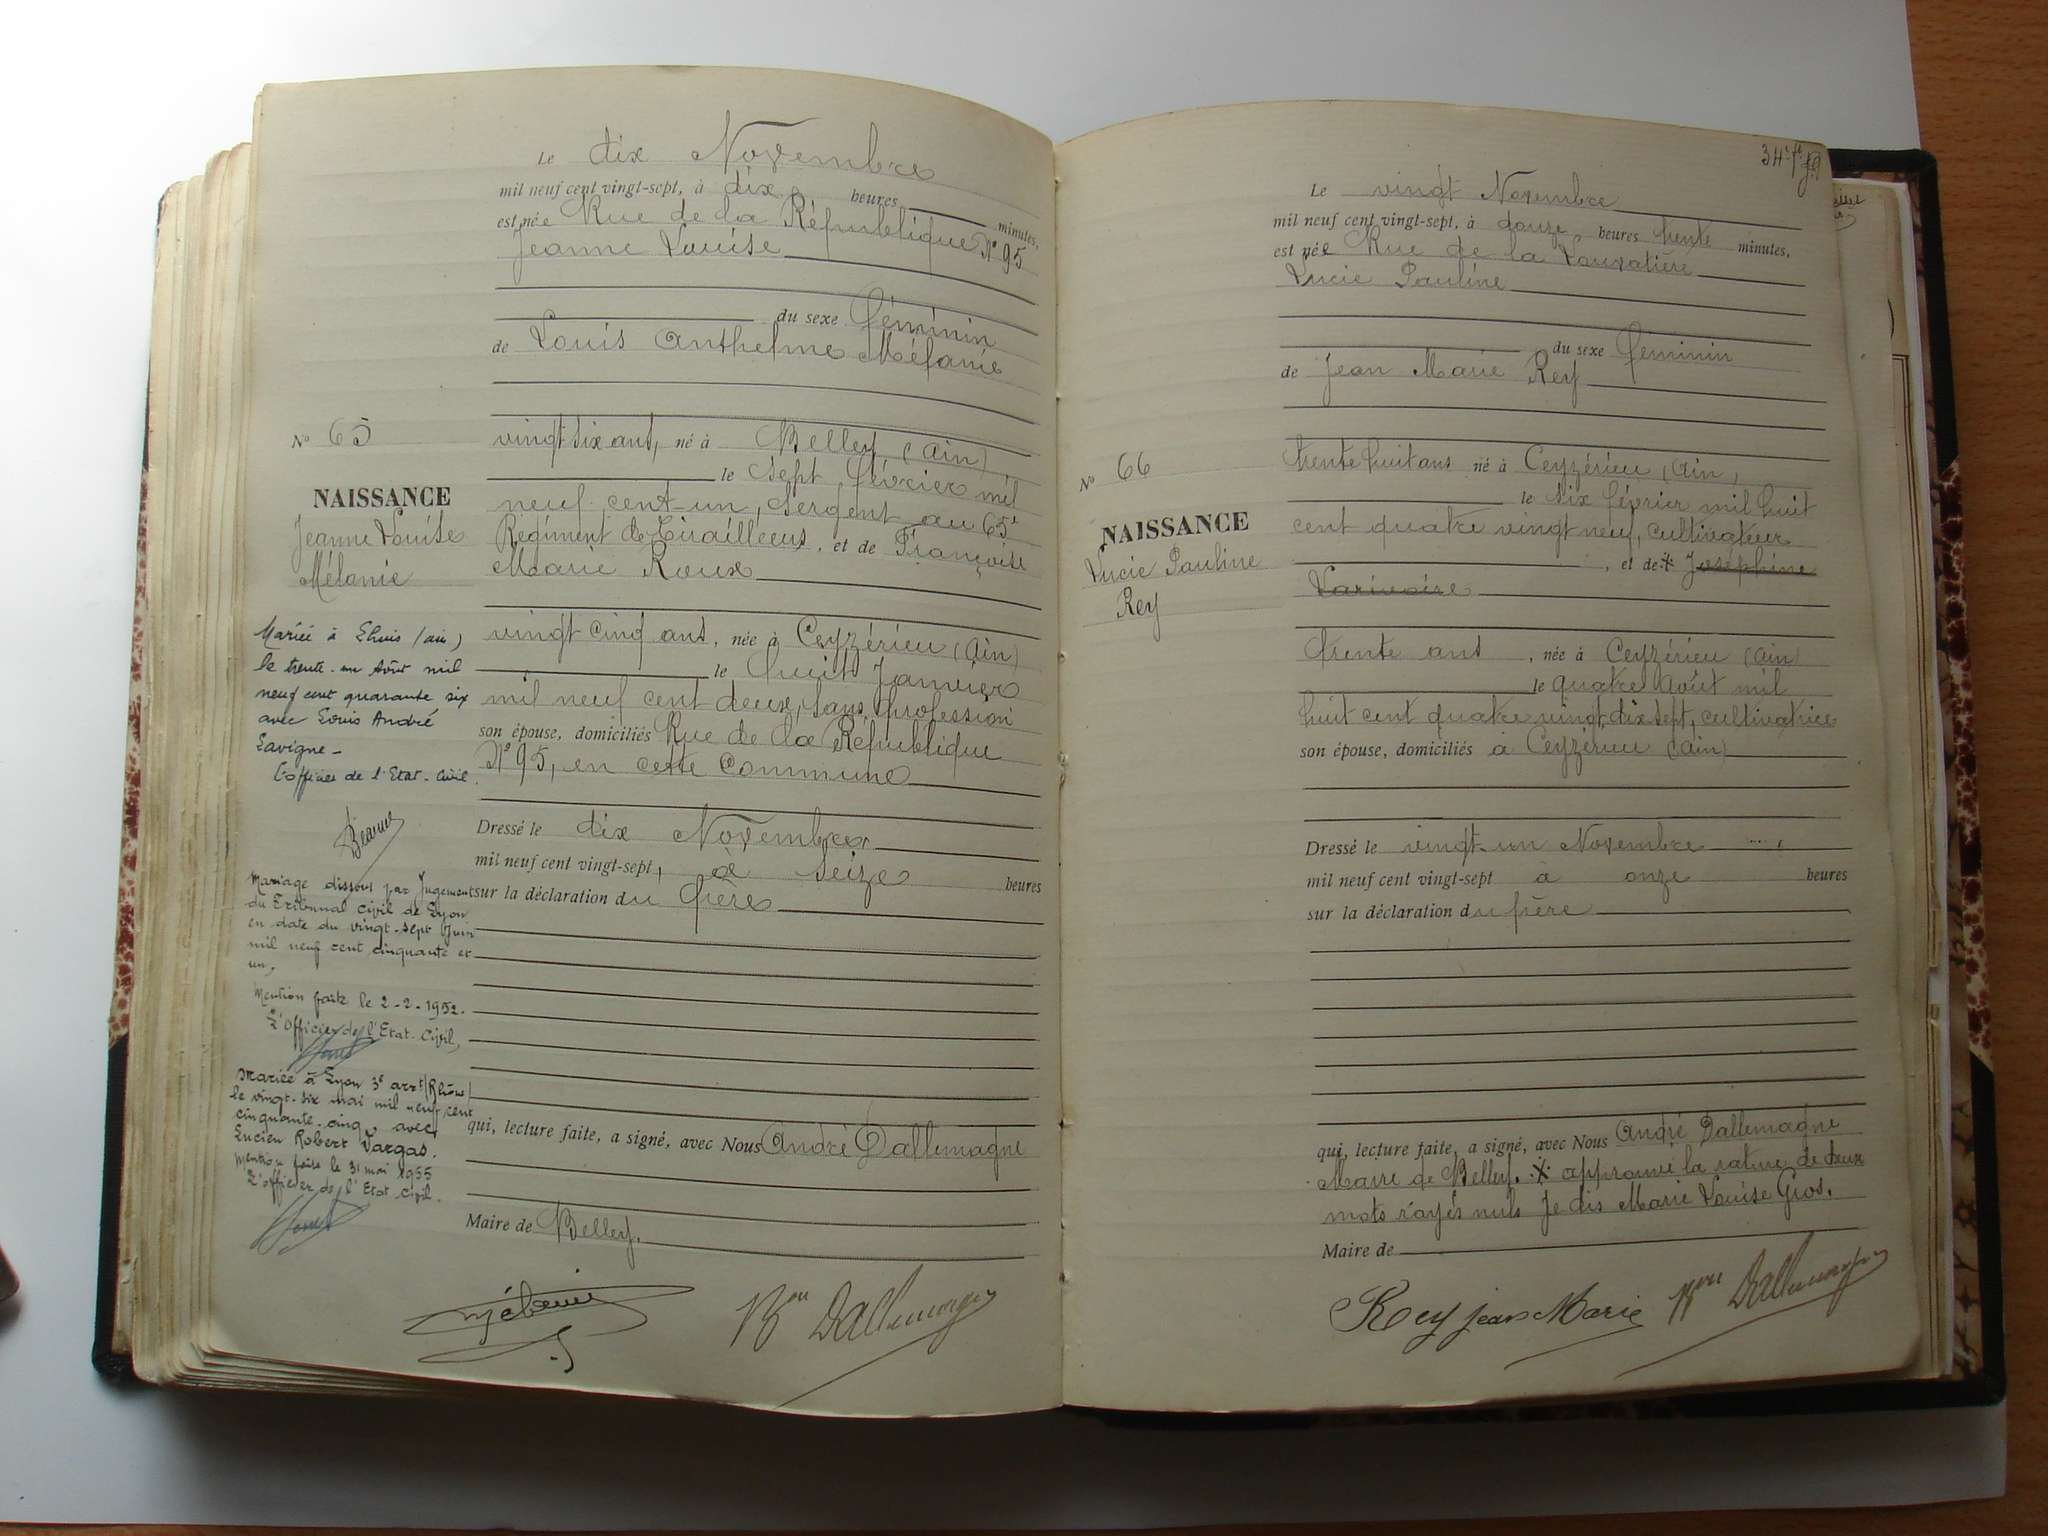 Le dix Novembre
mil neuf cent vingt-sept, à dix heures minutes,
est née Rue de la République N° 95
Jeanne Louise
du sexe féminin
de Louis Anthelme Mélanie
N° 65
vingt six ans, né à Belley (Ain),
le sept février mil
NAISSANCE
neuf cent un, Sergent au 65e
Jeanne Louise
Régiment de Tirailleurs, et de Françoise
Mélanie
Marie Roux
vingt cinq ans, née à Ceyzérieu (Ain)
le huit Janvier
mil neuf cent deux, sans profession
son épouse, domiciliés Rue de la République
N° 95, en cette commune
Mariée à Lhuis (ain)
le trente-un Août mil
neuf cent quarante six
avec Louis André
Lavigne -
L'officier de l'Etat-Civil
Dressé le dix Novembre
mil neuf cent vingt-sept, à seize heures
sur la déclaration du père
Mariage dissous par Jugement
du Tribunal Civil de Lyon
en date du vingt-sept Juin
mil neuf cent cinquante et
un,
Mention faite le 2-2-1952.
L'officier de l'Etat-Civil,
Mariée à Lyon 3e arrt (Rhône)
le vingt-six mai mil neuf cent
cinquante-cinq avec
Lucien Robert Vargas.
Mention faite le 31 mai 1955
L'officier de l'Etat Civil.
qui, lecture faite, a signé, avec Nous André Dallemagne
Maire de Belley.
Bon Dallemagne
34e ft
Le vingt Novembre
mil neuf cent vingt-sept, à douze heures trente minutes,
est née Rue de la Louvatière
Lucie Pauline
du sexe féminin
de Jean Marie Rey
N° 66
trente huit ans né à Ceyzérieu (Ain,
le six février mil huit
NAISSANCE
cent quatre vingt neuf, cultivateur
Lucie Pauline
, et de X Joséphine
Rey
Larivoire
trente ans, née à Ceyzérieu (Ain)
le quatre Août mil
huit cent quatre vingt dix sept, cultivatrice
son épouse, domiciliés à Ceyzérieu (Ain)
Dressé le vingt-un Novembre
mil neuf cent vingt-sept à onze heures
sur la déclaration du père
qui, lecture faite, a signé, avec Nous André Dallemagne
Maire de Belley. X approuvé la rature de deux
mots rayés nuls Je dis Marie Louise Gros.
Maire de
Rey jean Marie Bon Dallemagne